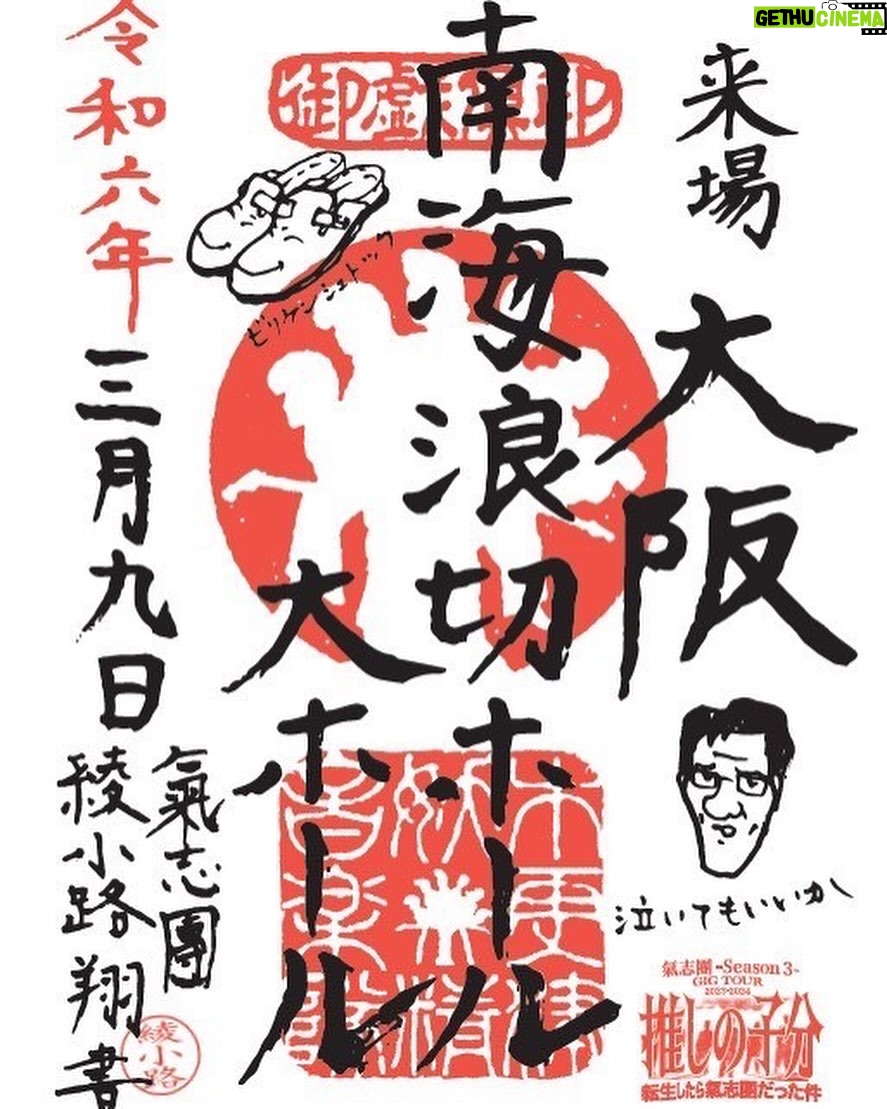 GETHUCINEMA
来場
大阪
南海浪切ホール
大ホール
ビリケンシュトック
令和六年三月九日
氣志團
綾小路翔書
綾小路
木更津
泣いてもいいか
氣志團-Season 3-
GIG TOUR
2023-2024
推しの子分
転生したら氣志團だった件